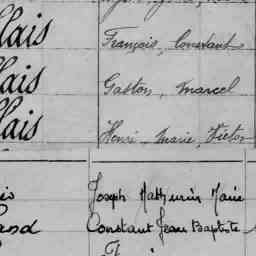 lais François, Constant
lais Gaston, Marcel
lais Henri, Marie, Victor
Joseph Mathurin Marie
and Constant Jean Baptiste